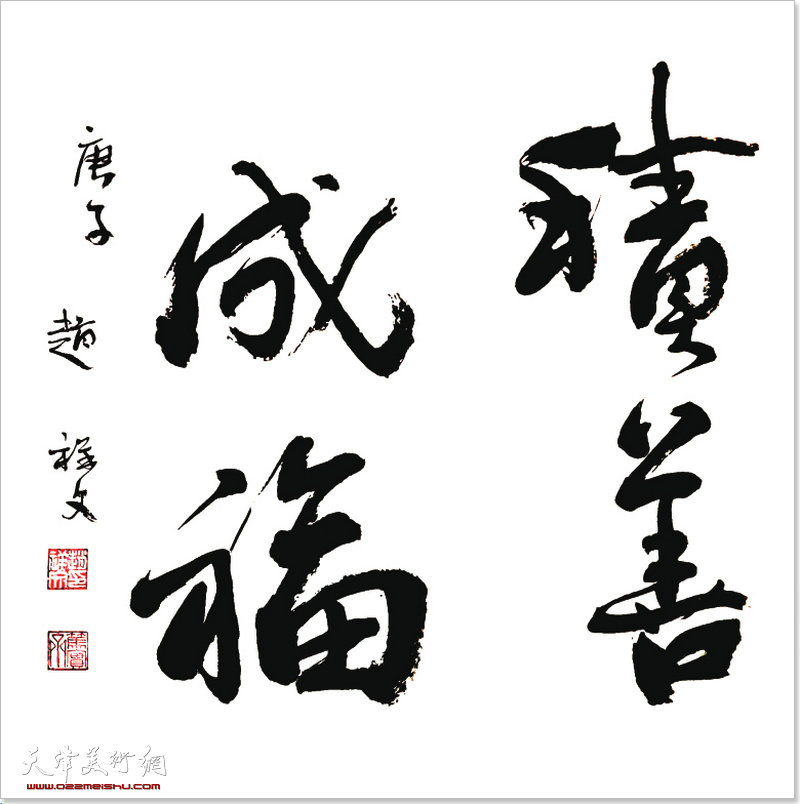 積善
成福
庚子 趙 祥文
天津美術網
www.022meishu.com